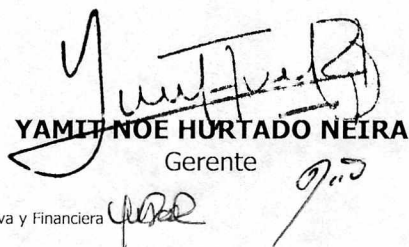 YAMIT NOE HURTADO NEIRA
Gerente
va y Financiera